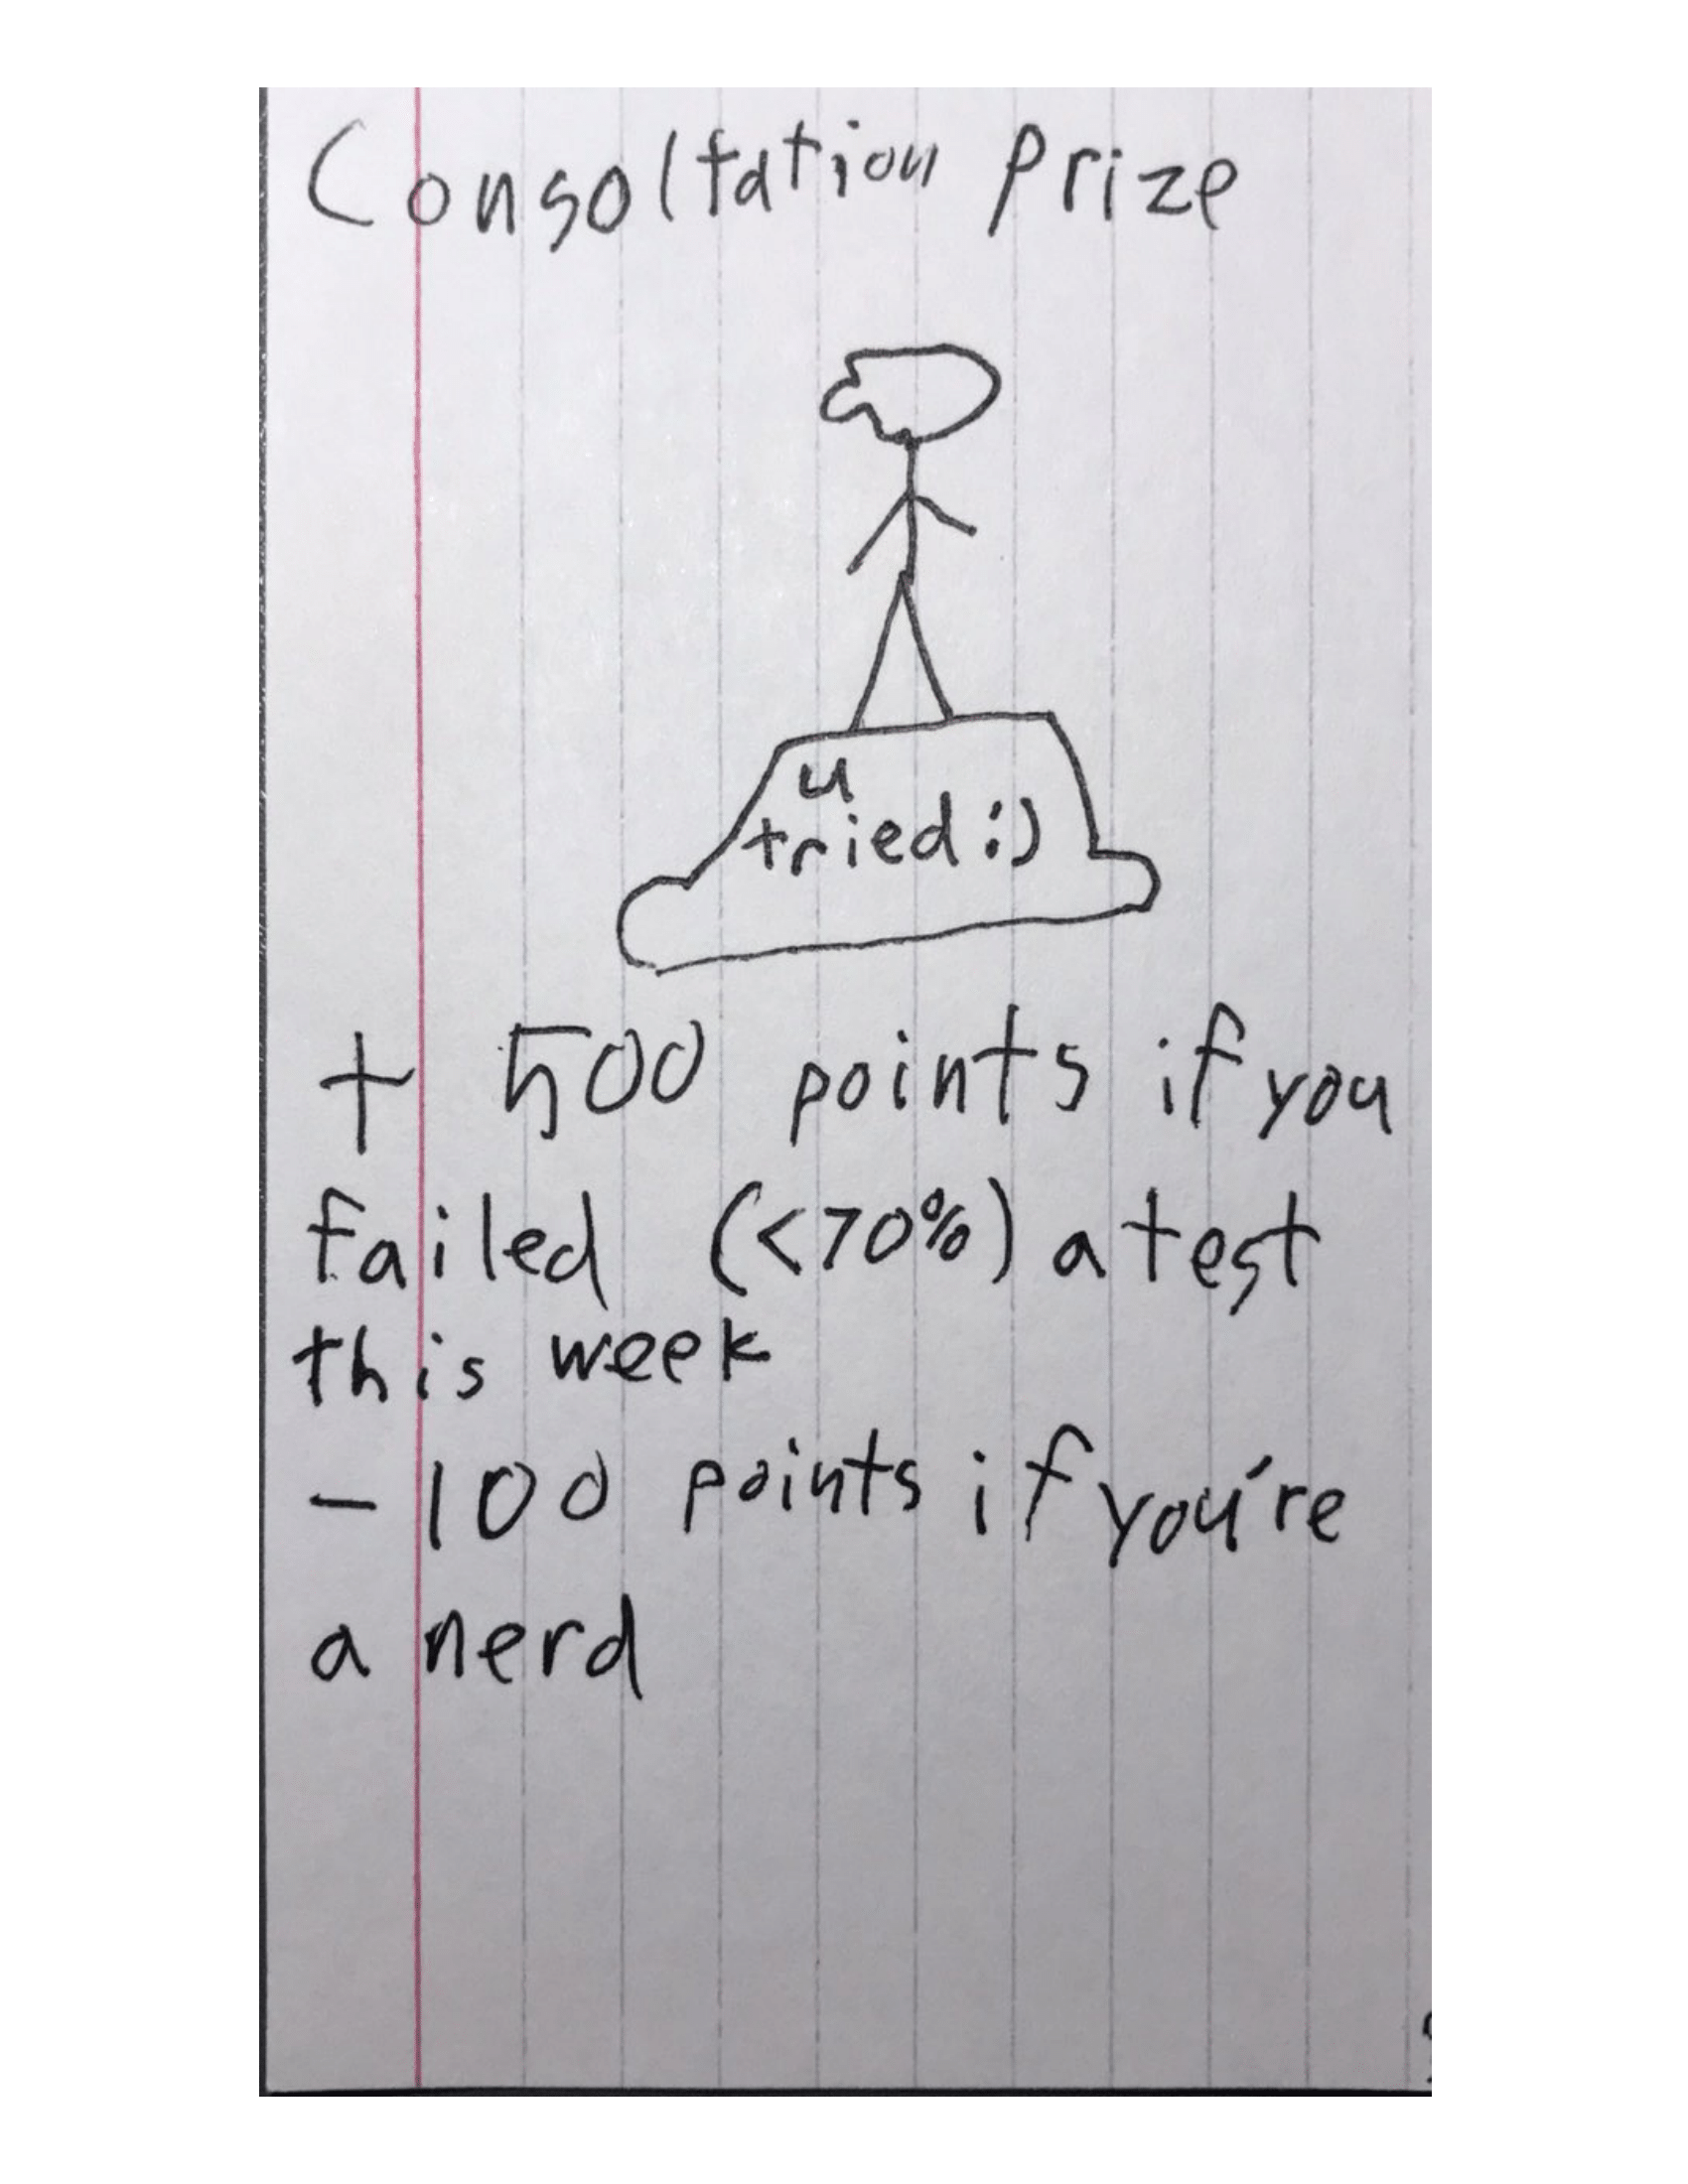 Consoltation prize
u
tried :)
+ 500 points if you
failed (<70%) a test
this week
- 100 points if you're
a nerd